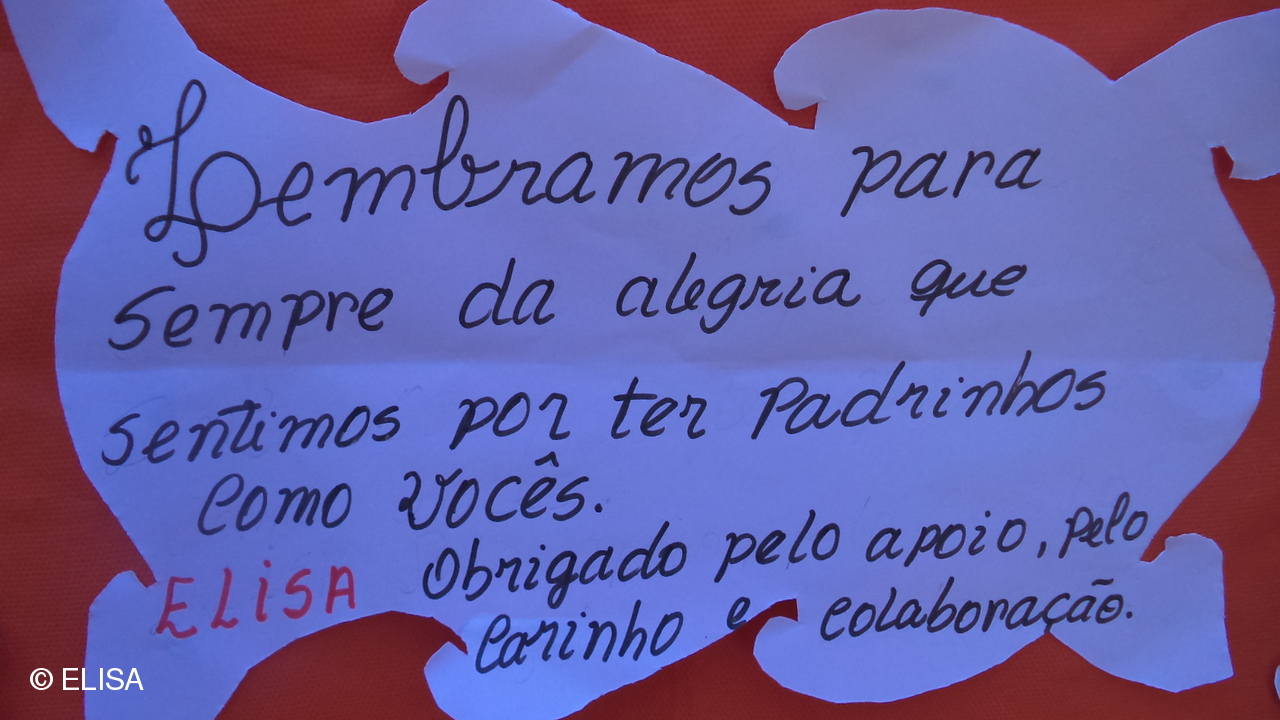 Lembramos para
sempre da alegria que
sentimos por ter Padrinhos
como Vocês.
Obrigado pelo apoio, pelo
ELiSA
carinho e colaboração.
© ELISA